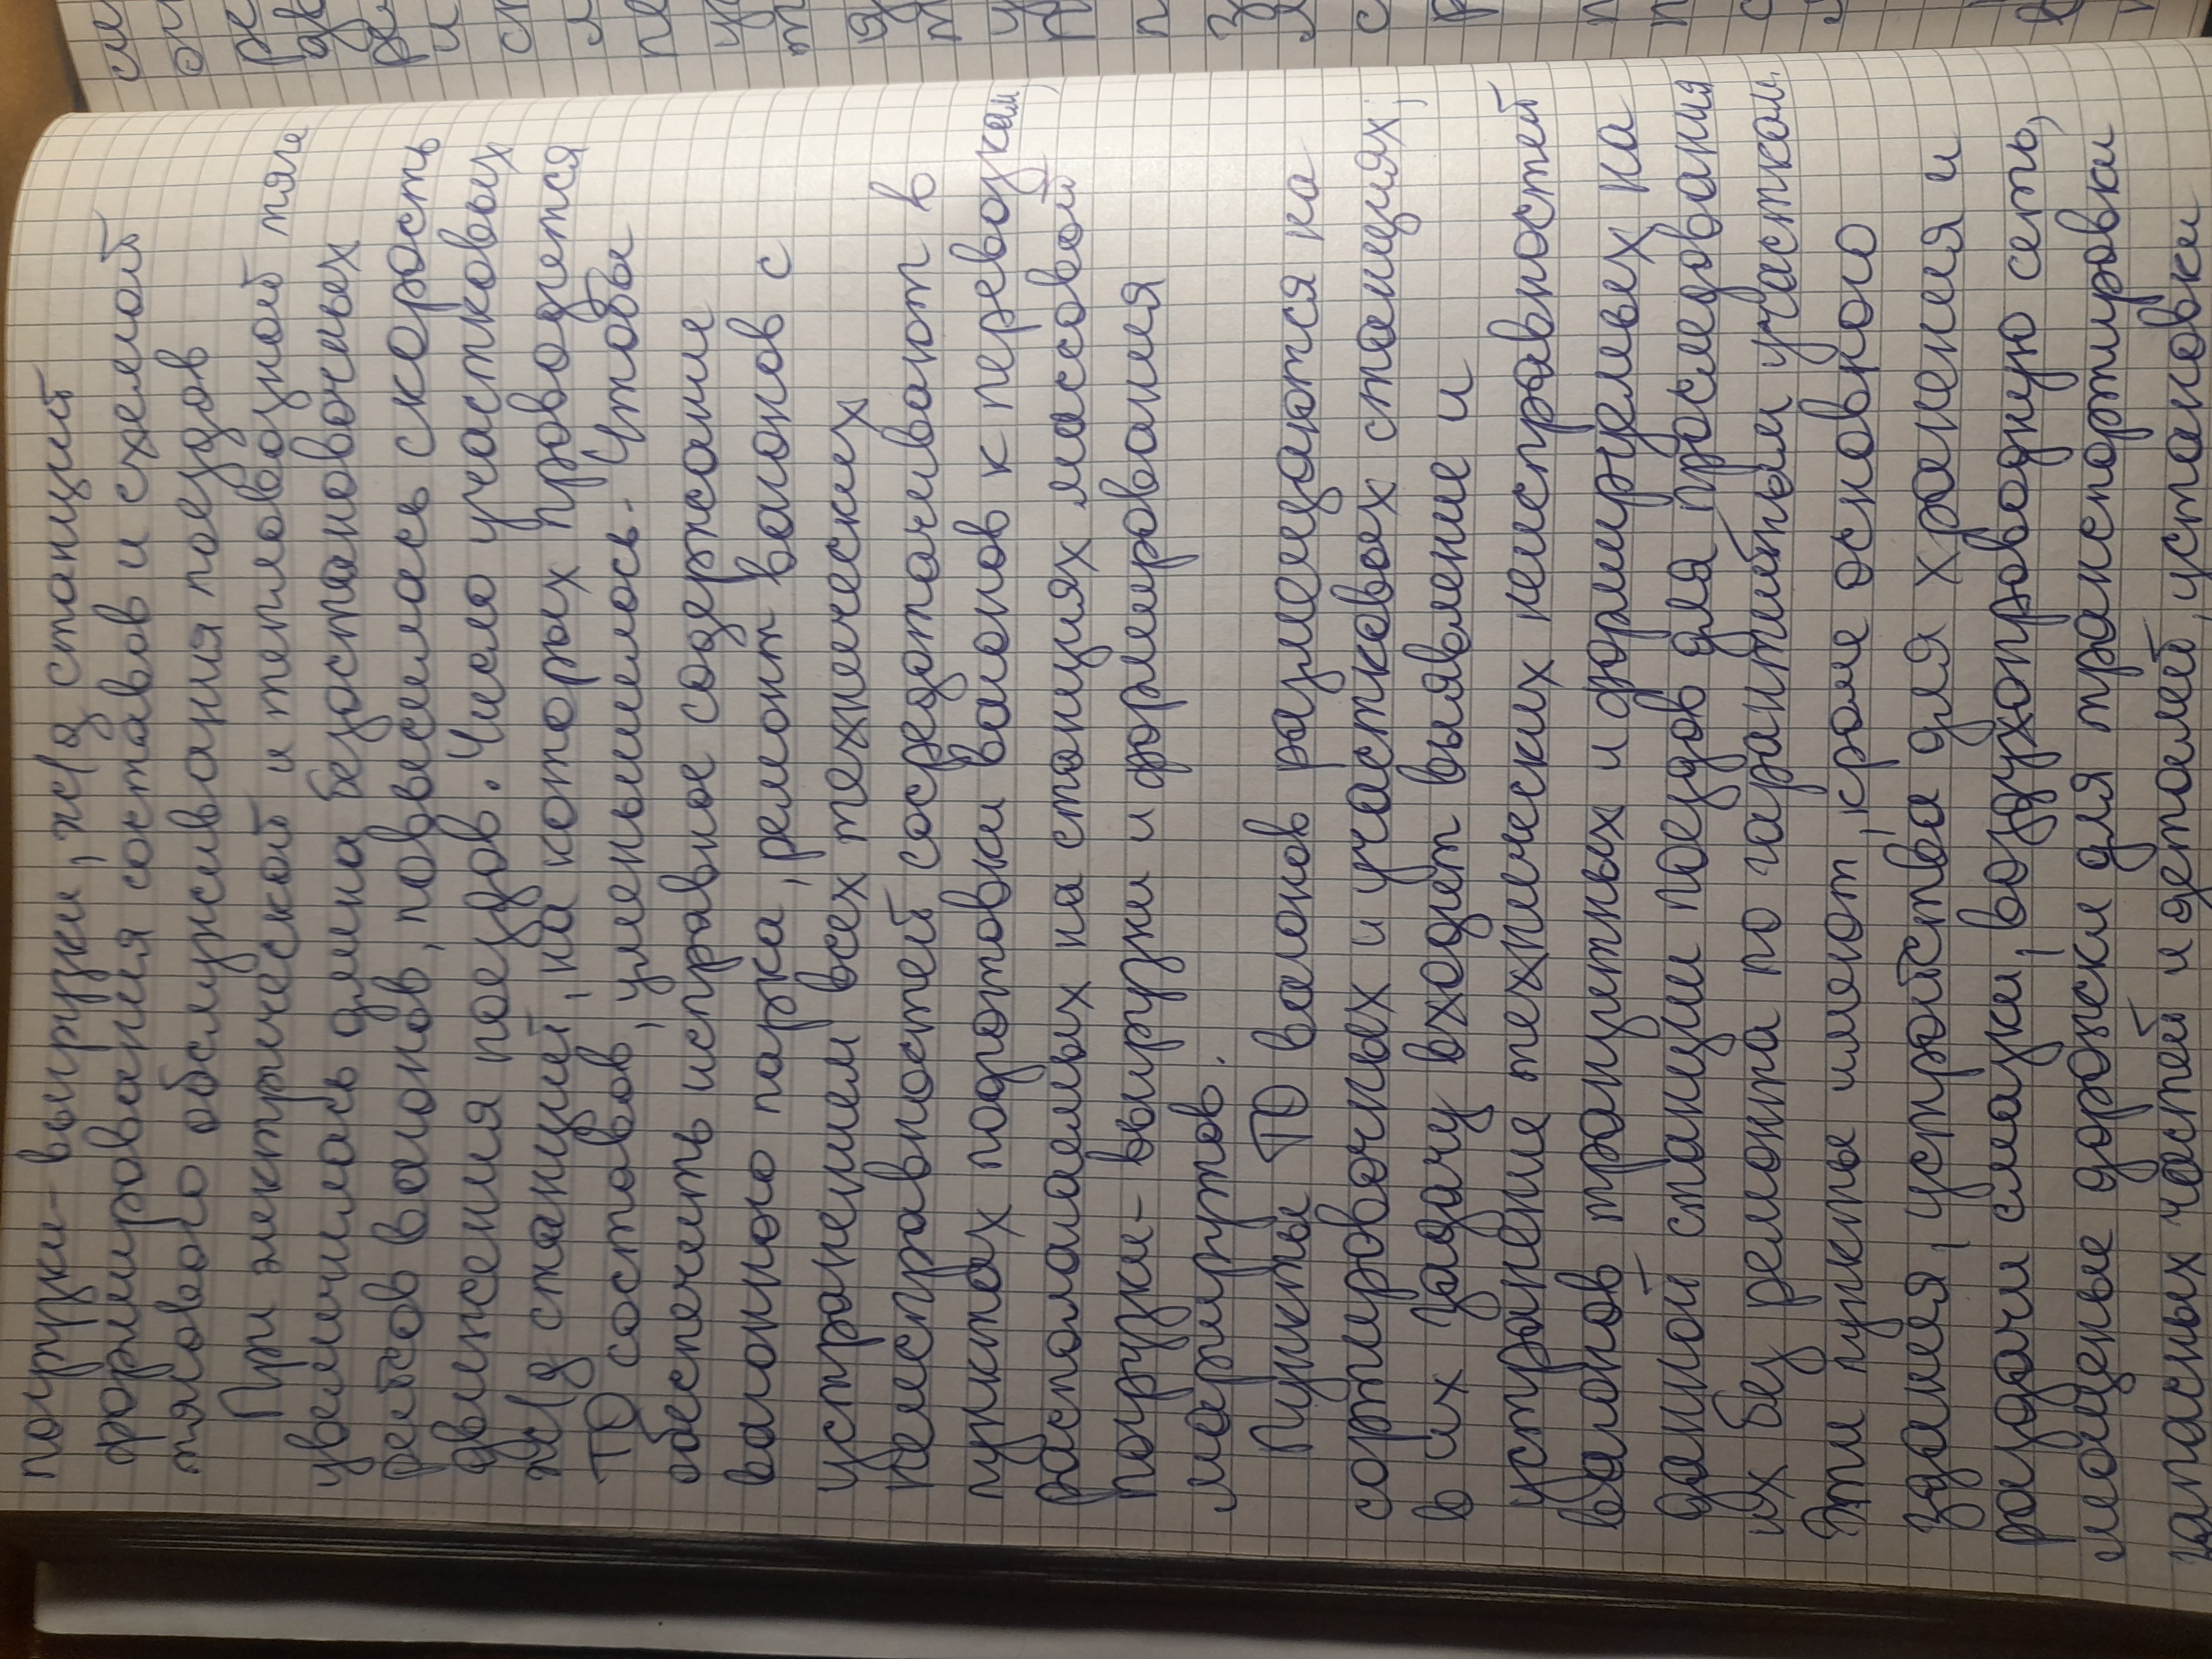 погрузки- выгрузки, ж/д станций
формирования составов и схемой
тягового обслуживания поездов
При электрической и тепловозной тяге
увеличилась длина безостановочных
рейсов вагонов, повысилась скорость
движения поездов. Число участковых
ж/д станций, на которых проводится
ТО составов, уменьшилось. Чтобы
обеспечить исправное содержание
вагонного парка, ремонт вагонов с
устранением всех технических
неисправностей сосредотачивают в
пунктах подготовки вагонов к перевозкам,
располагаемых на станциях массовой
погрузки- выгрузки и формирования
маршрутов.
Пункты ТО вагонов размещаются на
сортировочных и участковых станциях,
в их задачу входят выявление и
устранение технических неисправностей
вагонов транзитных и формируемых на
данной станции поездов для проследования
их без ремонта по гарантийным участкам.
Эти пункты имеют, кроме основного
здания, устройства для хранения и
раздачи смазки, воздухопроводную сеть,
мощеные дорожки для транспортировки
запасных частей и деталей, установки